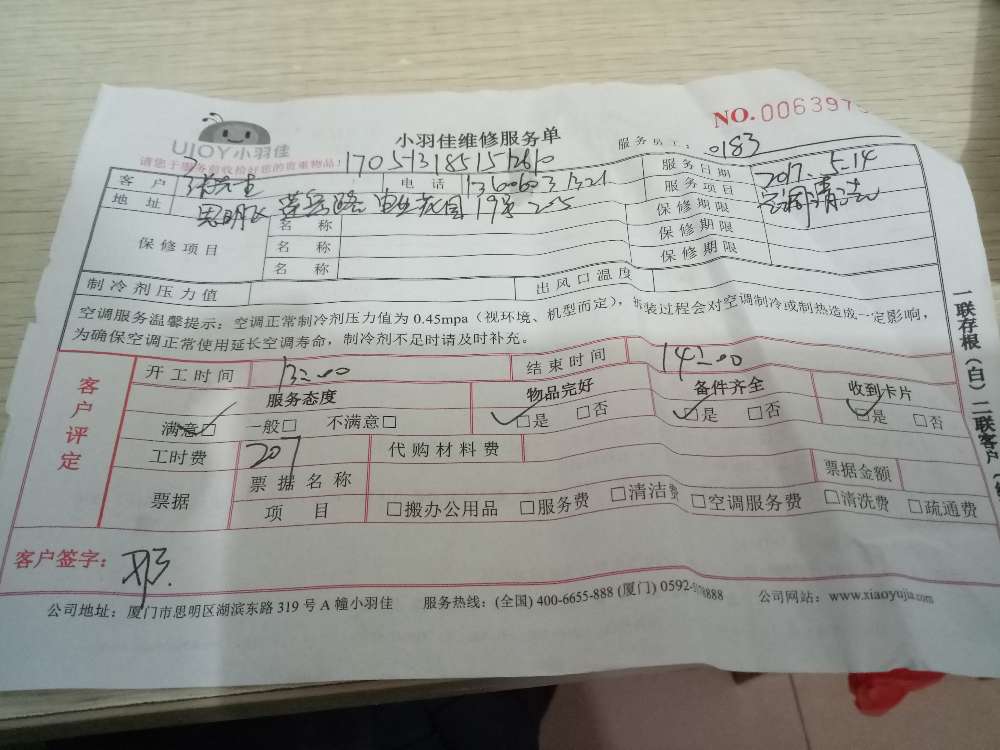 UJOY小羽佳
小羽佳维修服务单
NO.006397
请您于服务前收拾好您的贵重物品!
服务员工: 0183
客户
电话
服务日期 2017.5.14
地址 思明区
19号
服务项目 空调清洗
保修项目
名称
保修期限
名称
保修期限
名称
保修期限
制冷剂压力值
出风口温度
空调服务温馨提示:空调正常制冷剂压力值为 0.45mpa(视环境、机型而定),拆装过程会对空调制冷或制热造成一定影响,
为确保空调正常使用延长空调寿命,制冷剂不足时请及时补充。
客户评定
开工时间 13:00
结束时间 14:00
服务态度
物品完好
备件齐全
收到卡片
满意□ 一般□ 不满意□
□是 □否
□是 □否
□是 □否
工时费 207
代购材料费
票据
票据名称
票据金额
项目
□搬办公用品 □服务费 □清洁费 □空调服务费 □清洗费 □疏通费
客户签字:
公司地址:厦门市思明区湖滨东路 319 号 A 幢小羽佳 服务热线:(全国) 400-6655-888 (厦门) 0592- 公司网站:www.xiaoyujia.com
一联存根(白)二联客户